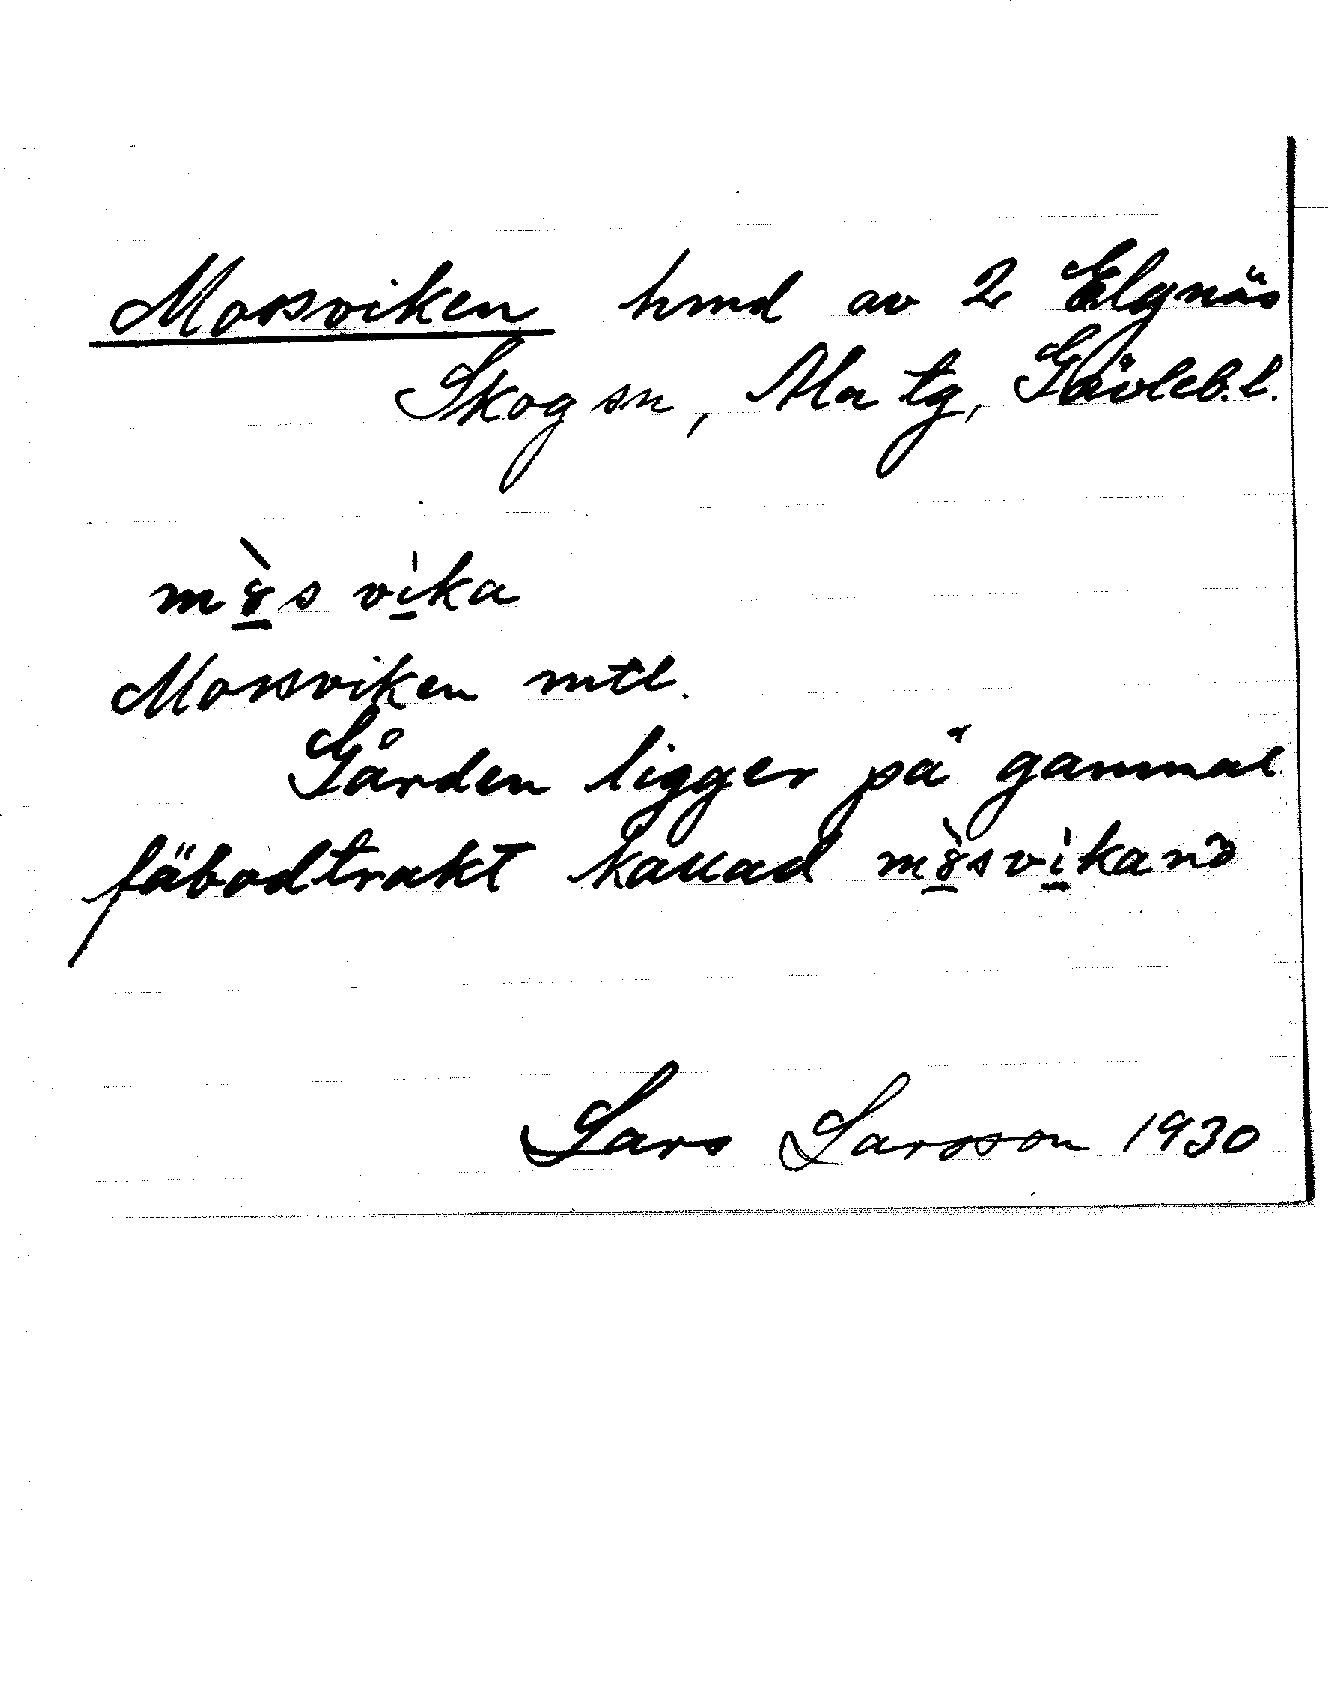 Mossviken hmd av 2 Elgnäs
Skog sn, Ala tg, Gävleb.l.
mɤ̱̀s vi̱̍ka
Mossviken mtl.
Gården ligger på gammal
fäbodtrakt kallad mɤ̱̀svi̱̍kanə
Lars Larsson 1930